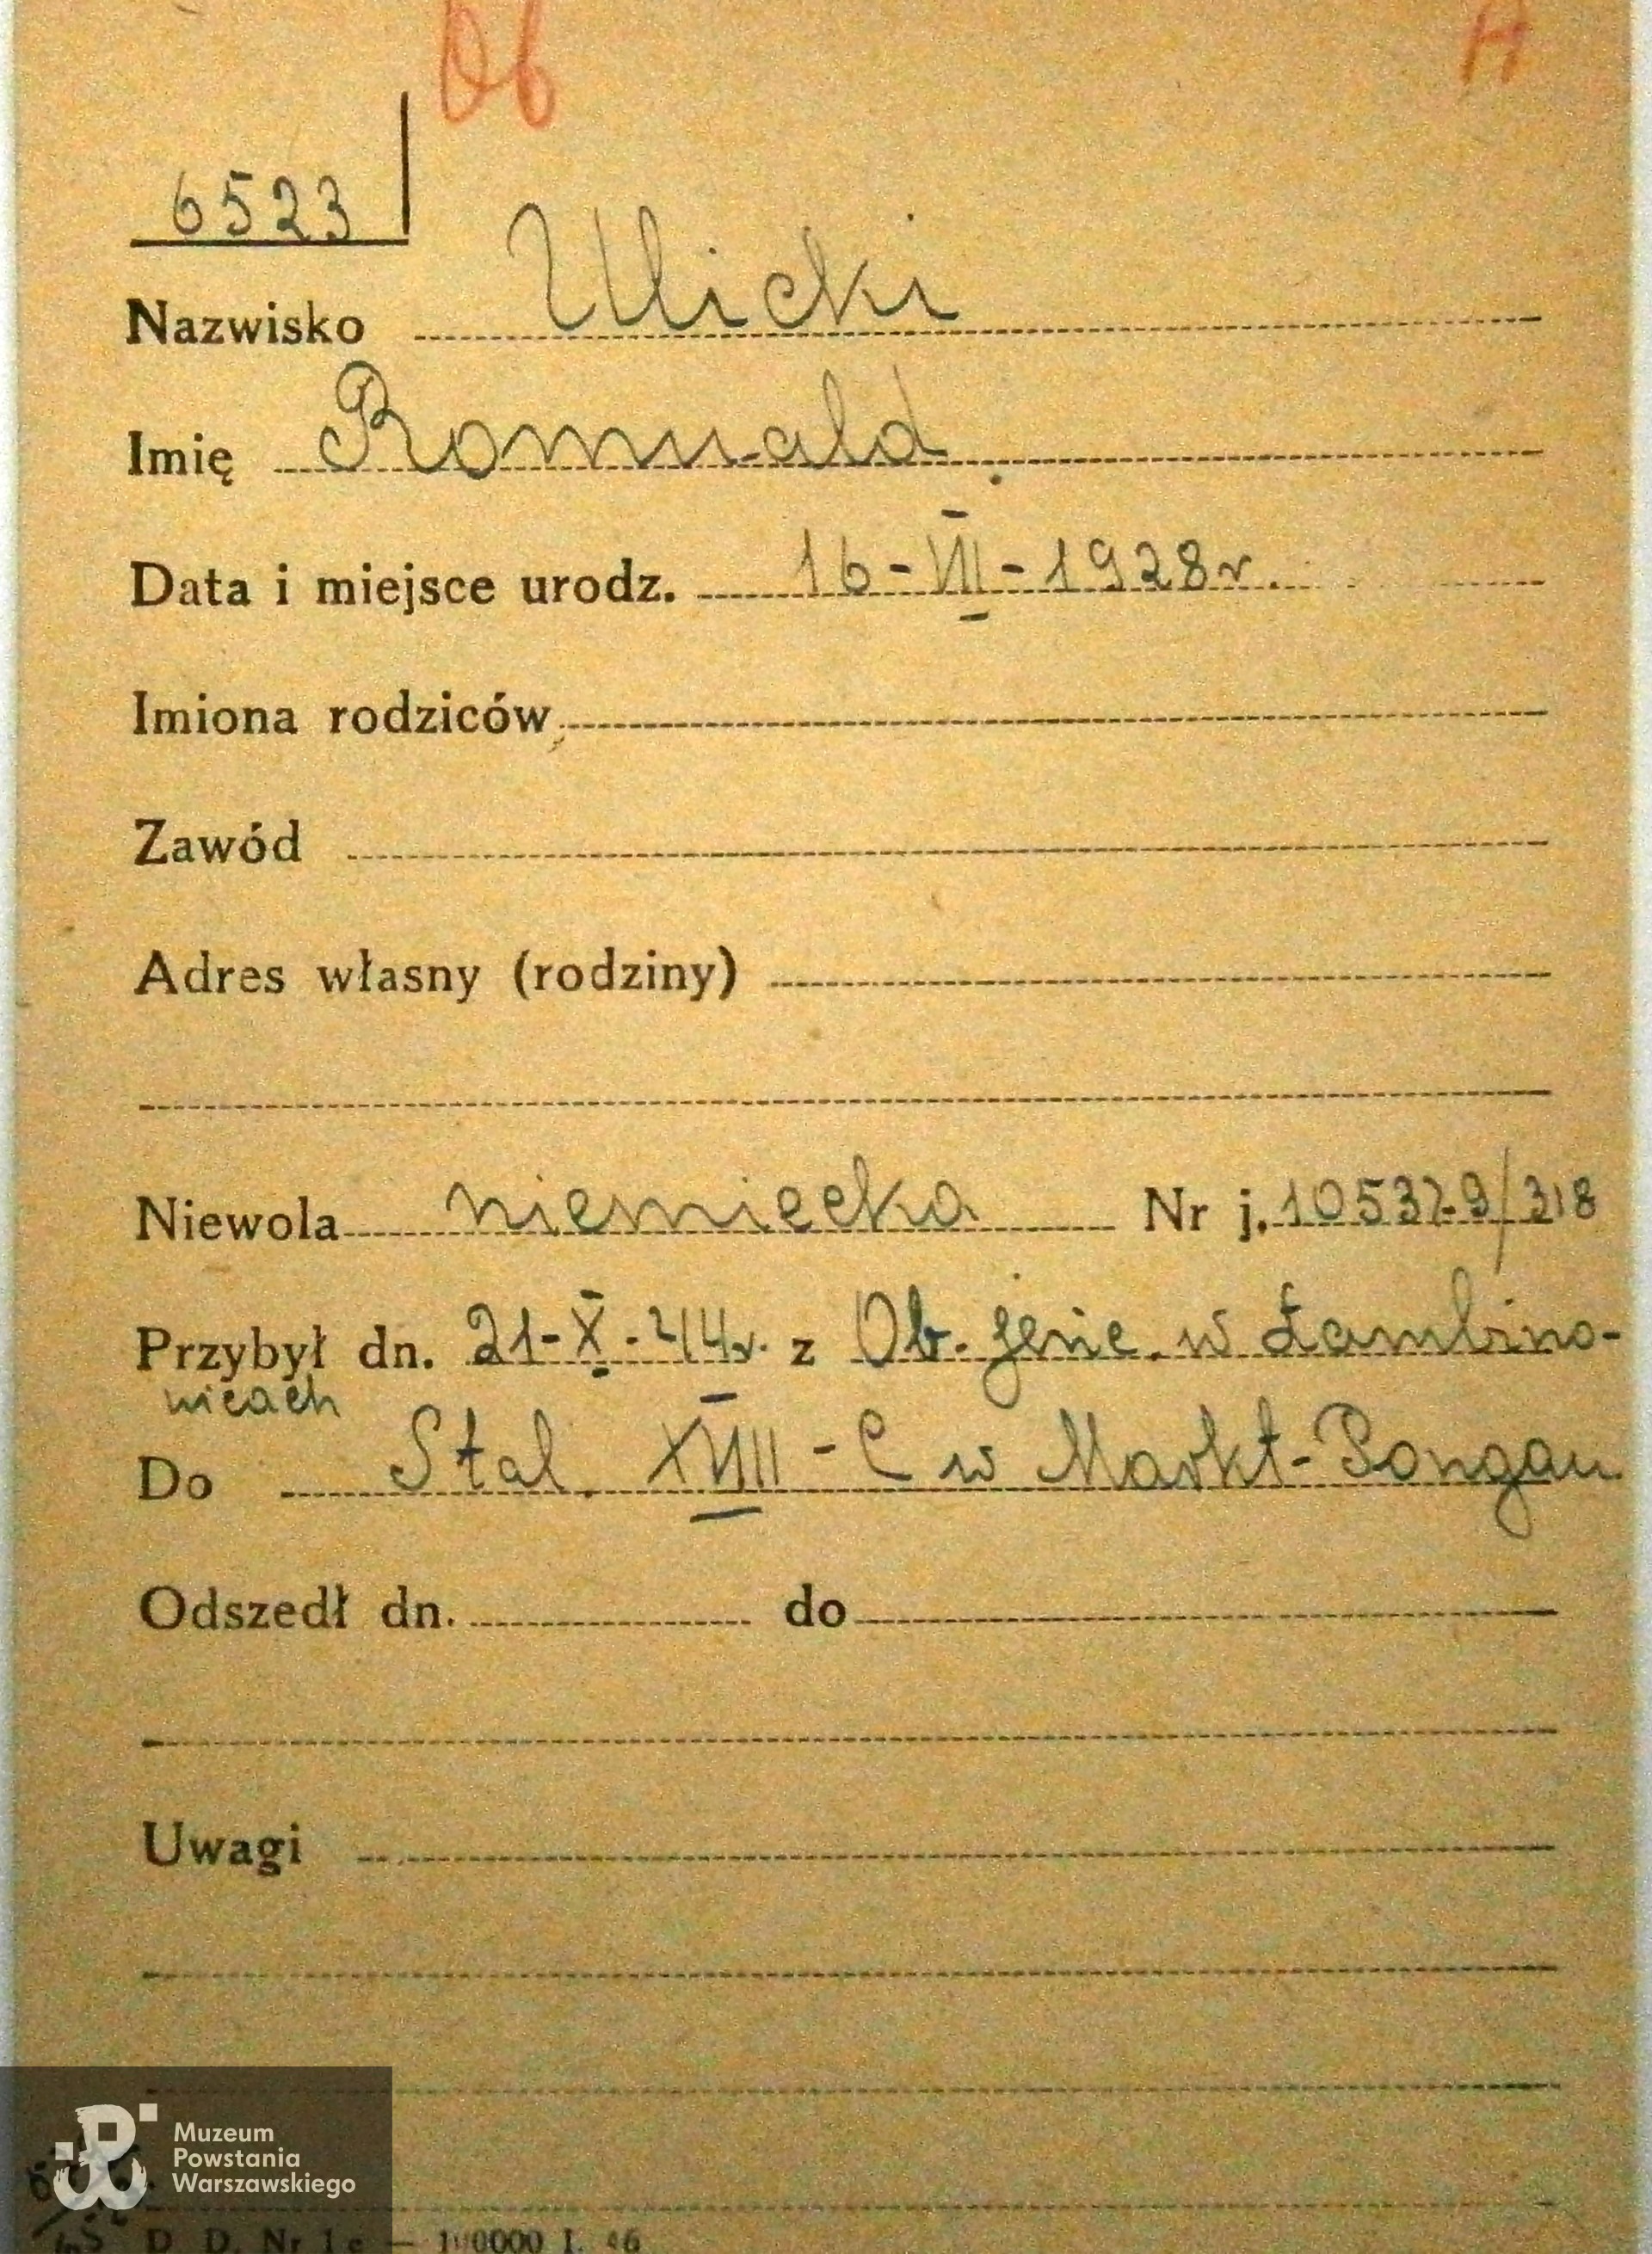 Ob H
6523
Nazwisko Ulicki
Imię Romuald.
Data i miejsce urodz. 16-VII-1928r.
Imiona rodziców
Zawód
Adres własny (rodziny)
Niewola niemiecka Nr j. /318
Przybył dn. 21-X-44r. z Ob. jenie. w Łambino-
wicach
Do Stal. XVIII-C w Markt-Pongau
Odszedł dn. do
Uwagi
Muzeum
Powstania
Warszawskiego
D. D. Nr 1c — I. 46